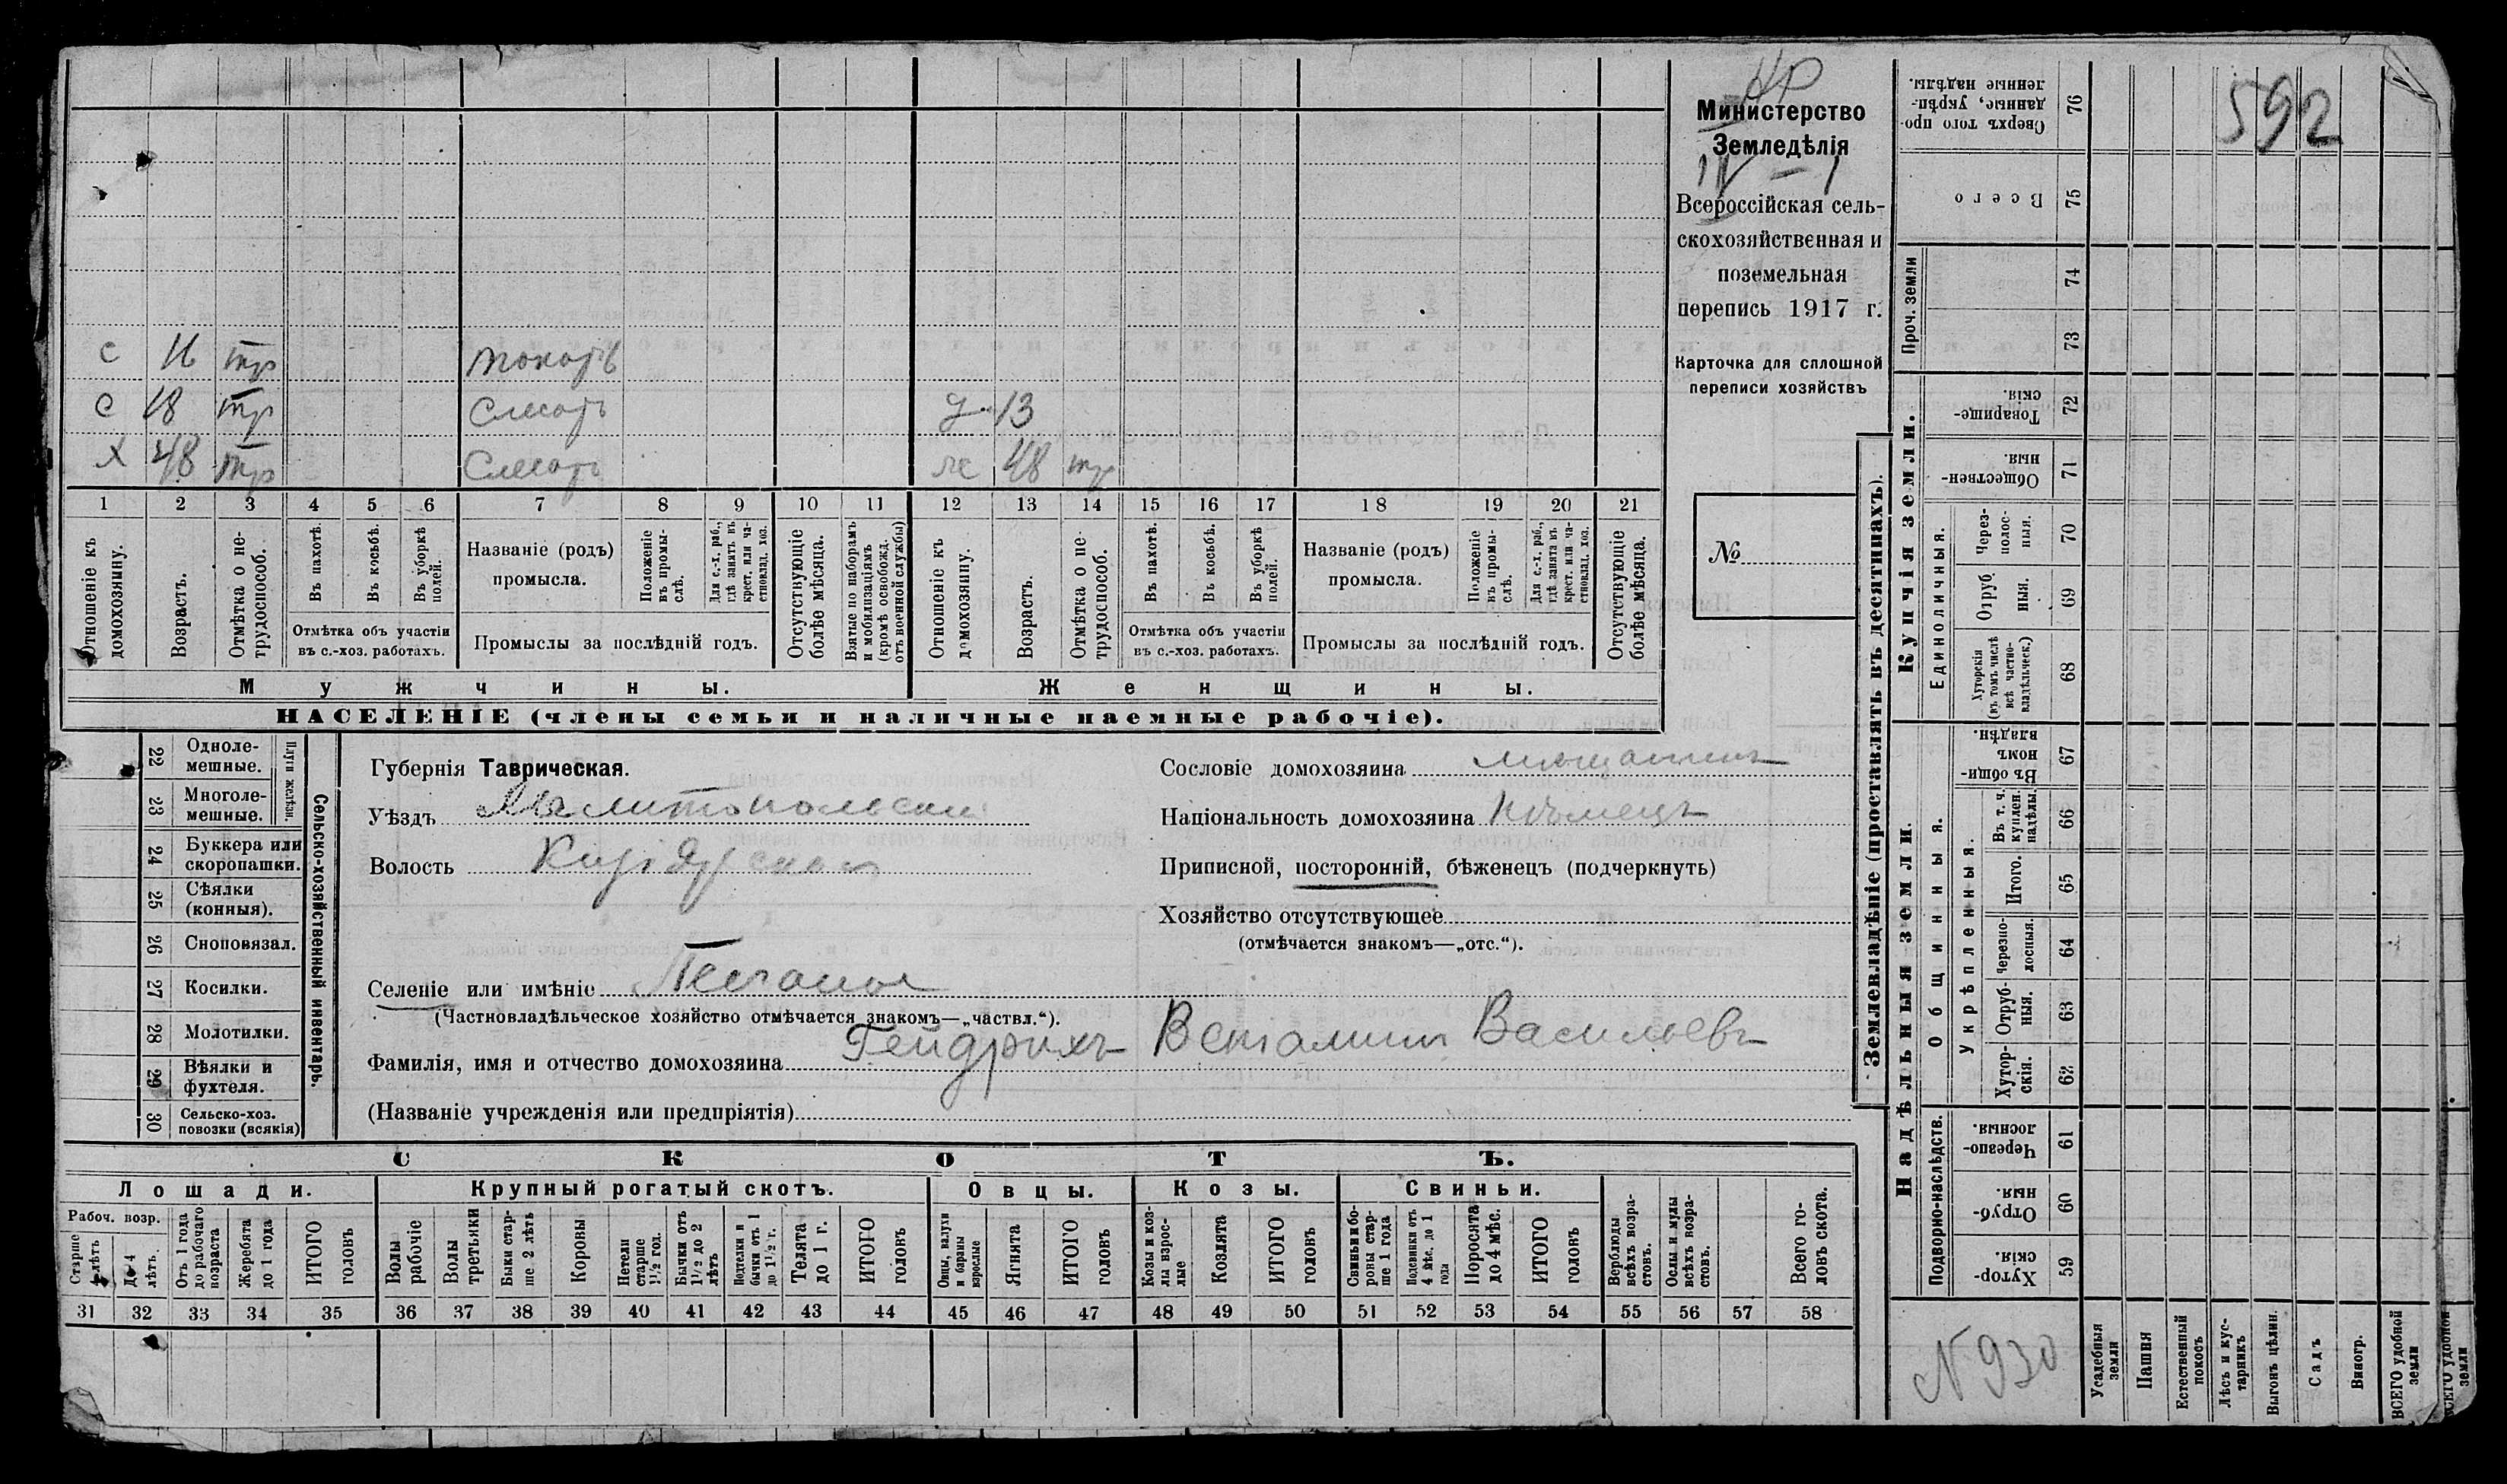 592
Министерство
Земледѣлія
IV – 1
Всероссійская сель-
скохозяйственная и
поземельная
перепись 1917 г.
Карточка для сплошной
переписи хозяйствъ
№
с 16 тр токарь
с 18 тр Слесарь д 13
х 48 тр Слесарь ж 48 тр
1 2 3 4 5 6 7 8 9 10 11 12 13 14 15 16 17 18 19 20 21
Отношеніе къ домохозяину.
Возрастъ.
Отмѣтка о не-трудоспособ.
Въ пахотѣ.
Въ косьбѣ.
Въ уборкѣ полей.
Отмѣтка объ участіи
въ с.-хоз. работахъ.
Названіе (родъ)
промысла.
Положеніе въ промы-слѣ.
Для с.-х. раб., гдѣ занятъ въ крест. или ча-стновлад. хоз.
Промыслы за послѣдній годъ.
Отсутствующіе болѣе мѣсяца.
Взятые по наборамъ и мобилизаціямъ (кромѣ освобожд. отъ военной службы)
Отношеніе къ домохозяину.
Возрастъ.
Отмѣтка о не-трудоспособ.
Въ пахотѣ.
Въ косьбѣ.
Въ уборкѣ полей.
Отмѣтка объ участіи
въ с.-хоз. работахъ.
Названіе (родъ)
промысла.
Положеніе въ промы-слѣ.
Для с.-х. раб., гдѣ занята въ крест. или ча-стновлад. хоз.
Промыслы за послѣдній годъ.
Отсутствующіе болѣе мѣсяца.
Мужчины. Женщины.
НАСЕЛЕНІЕ (члены семьи и наличные наемные рабочіе).
Сельско-хозяйственный инвентарь.
Плуги желѣзн.
22 Одноле-мешные.
23 Многоле-мешные.
24 Буккера или скоропашки.
25 Сѣялки (конныя).
26 Сноповязал.
27 Косилки.
28 Молотилки.
29 Вѣялки и фухтеля.
30 Сельско-хоз. повозки (всякія)
Губернія Таврическая.
Уѣздъ Мелитопольскій
Волость
Селеніе или имѣніе
(Частновладѣльческое хозяйство отмѣчается знакомъ—„частвл.“).
Фамилія, имя и отчество домохозяина Гейдрихъ Веніаминъ Васильевъ
(Названіе учрежденія или предпріятія)
Сословіе домохозяина мѣщанинъ
Національность домохозяина Нѣмецъ
Приписной, посторонній, бѣженецъ (подчеркнуть)
Хозяйство отсутствующее
(отмѣчается знакомъ—„отс.“).
СКОТЪ.
Лошади. Крупный рогатый скотъ. Овцы. Козы. Свиньи.
Рабоч. возр.
Старше 4 лѣтъ
До 4 лѣтъ.
Отъ 1 года до рабочаго возраста
Жеребята до 1 года
ИТОГО головъ
Волы рабочіе
Волы третьяки
Быки стар-ше 2 лѣтъ
Коровы
Нетели старше 1½ год.
Бычки отъ 1½ до 2 лѣтъ
Подтелки и бычки отъ 1 до 1½ г.
Телята до 1 г.
ИТОГО головъ
Овцы, валухи и бараны взрослые
Ягнята
ИТОГО головъ
Козы и коз-лы взрос-лые
Козлята
ИТОГО головъ
Свиньи и бо-ровы стар-ше 1 года
Подсвинки отъ 4 мѣс. до 1 года
Поросята до 4 мѣс.
ИТОГО головъ
Верблюды всѣхъ возра-стовъ.
Ослы и мулы всѣхъ возра-стовъ.
Всего го-ловъ скота.
31 32 33 34 35 36 37 38 39 40 41 42 43 44 45 46 47 48 49 50 51 52 53 54 55 56 57 58
Землевладѣніе (проставлять въ десятинахъ).
Сверхъ того про-данные, укрѣп-ленные надѣлы. 76
Всего 75
Проч. земли
74
73
Купчія земли.
Товарище-скія. 72
Обществен-ныя. 71
Единоличныя.
Через-полос-ныя. 70
Отруб ныя. 69
Хуторскія (въ томъ числѣ всѣ частно-владѣльческ.) 68
Надѣльныя земли.
Общинныя.
Въ общи-номъ владѣн. 67
Укрѣпленныя.
Въ т. ч. куплен. надѣлы. 66
Итого. 65
Черезпо-лосныя. 64
Отруб-ныя. 63
Хутор-скія. 62
Подворно-наслѣдств.
Черезпо-лосныя. 61
Отруб-ныя. 60
Хутор-скія. 59
N 930
Усадебныя земли
Пашня
Естественный покосъ
Лѣсъ и кус-тарникъ
Выгонъ цѣлин.
Садъ
Виногр.
ВСЕГО удобной земли
ВСЕГО удобной земли